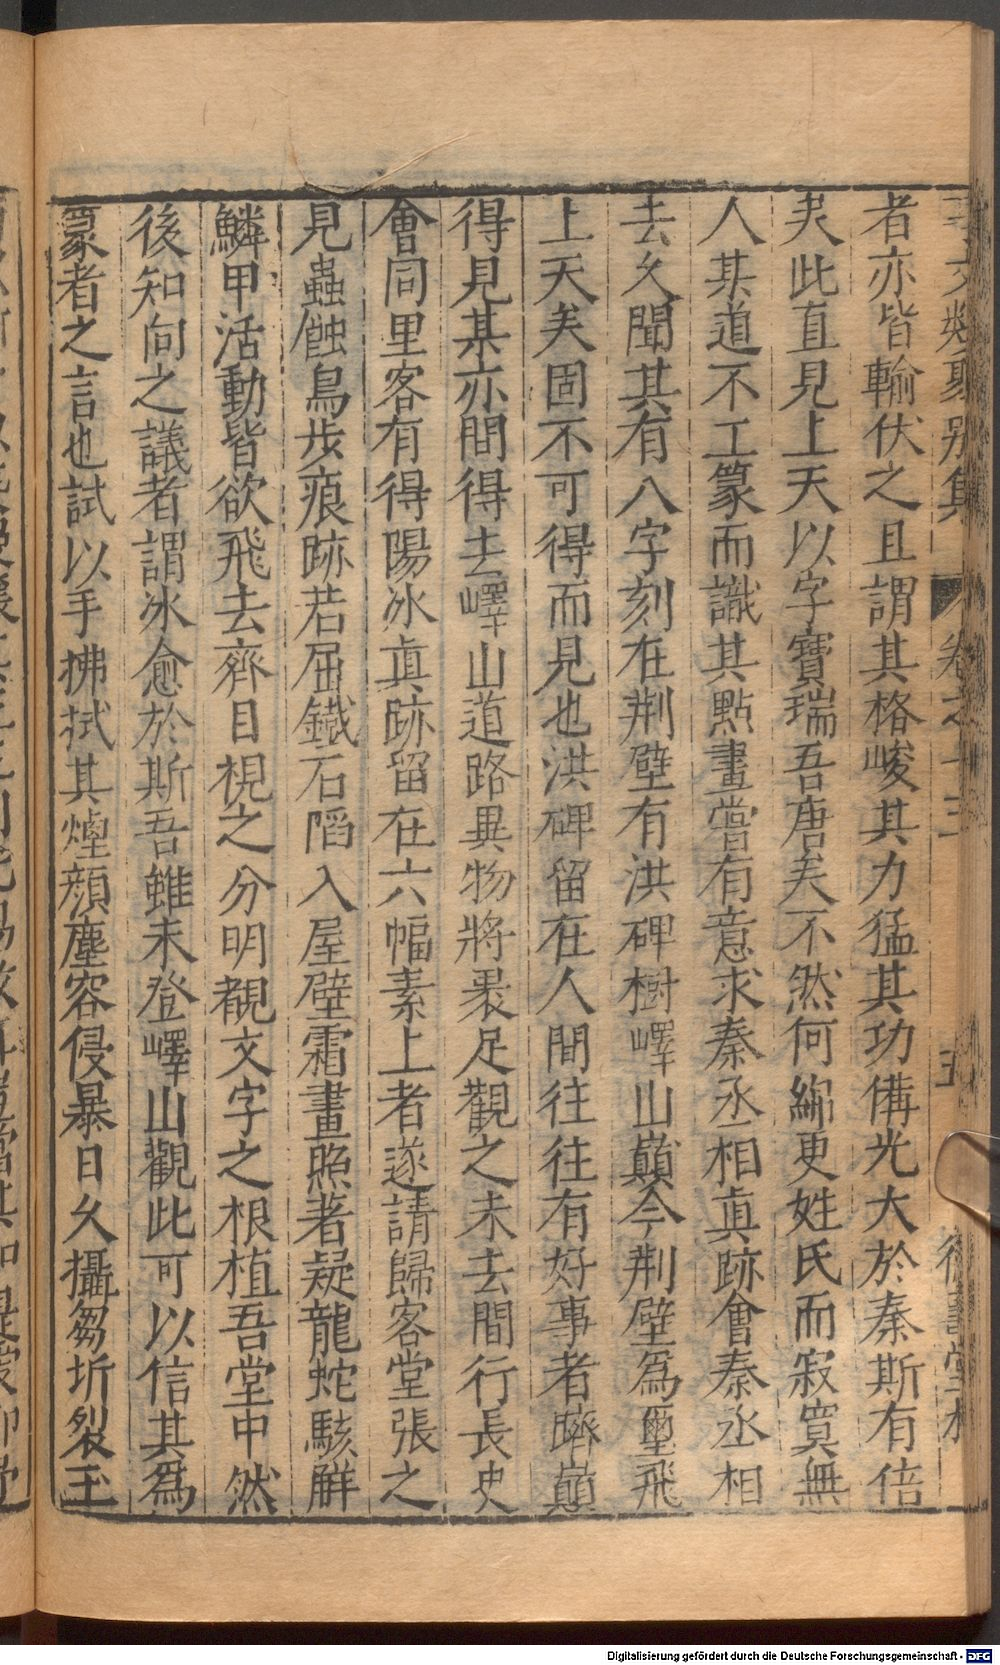 事文類聚別集 卷之十三 五
者亦皆輸伏之且謂其格峻其力猛其功備光大於秦斯有倍
矣此直見上天以字寶瑞吾唐矣不然何綿更姓氏而寂寞無
人某道不工篆而識其點畫嘗有意求秦丞相真跡會秦丞相
去久聞其有八字刻在荆璧有洪碑樹嶧山巔今荆璧爲璽飛
上天矣固不可得而見也洪碑留在人間往往有好事者躋巔
得見某亦間得去嶧山道路異物將褁足觀之未去間行長史
會同里客有得陽冰真跡留在六幅素上者遂請歸客堂張之
見蟲蝕鳥步痕跡若屈鐵石陷入屋壁霜畫照著疑龍蛇駭解
鱗甲活動皆欲飛去齊目視之分明覩文字之根植吾堂中然
後知向之議者謂冰愈於斯吾雖未登嶧山觀此可以信其爲
篆者之言也試以手拂拭其煙顔塵容侵暴日久攝芻圻裂玉
Digitalisierung gefördert durch die Deutsche Forschungsgemeinschaft - DFG